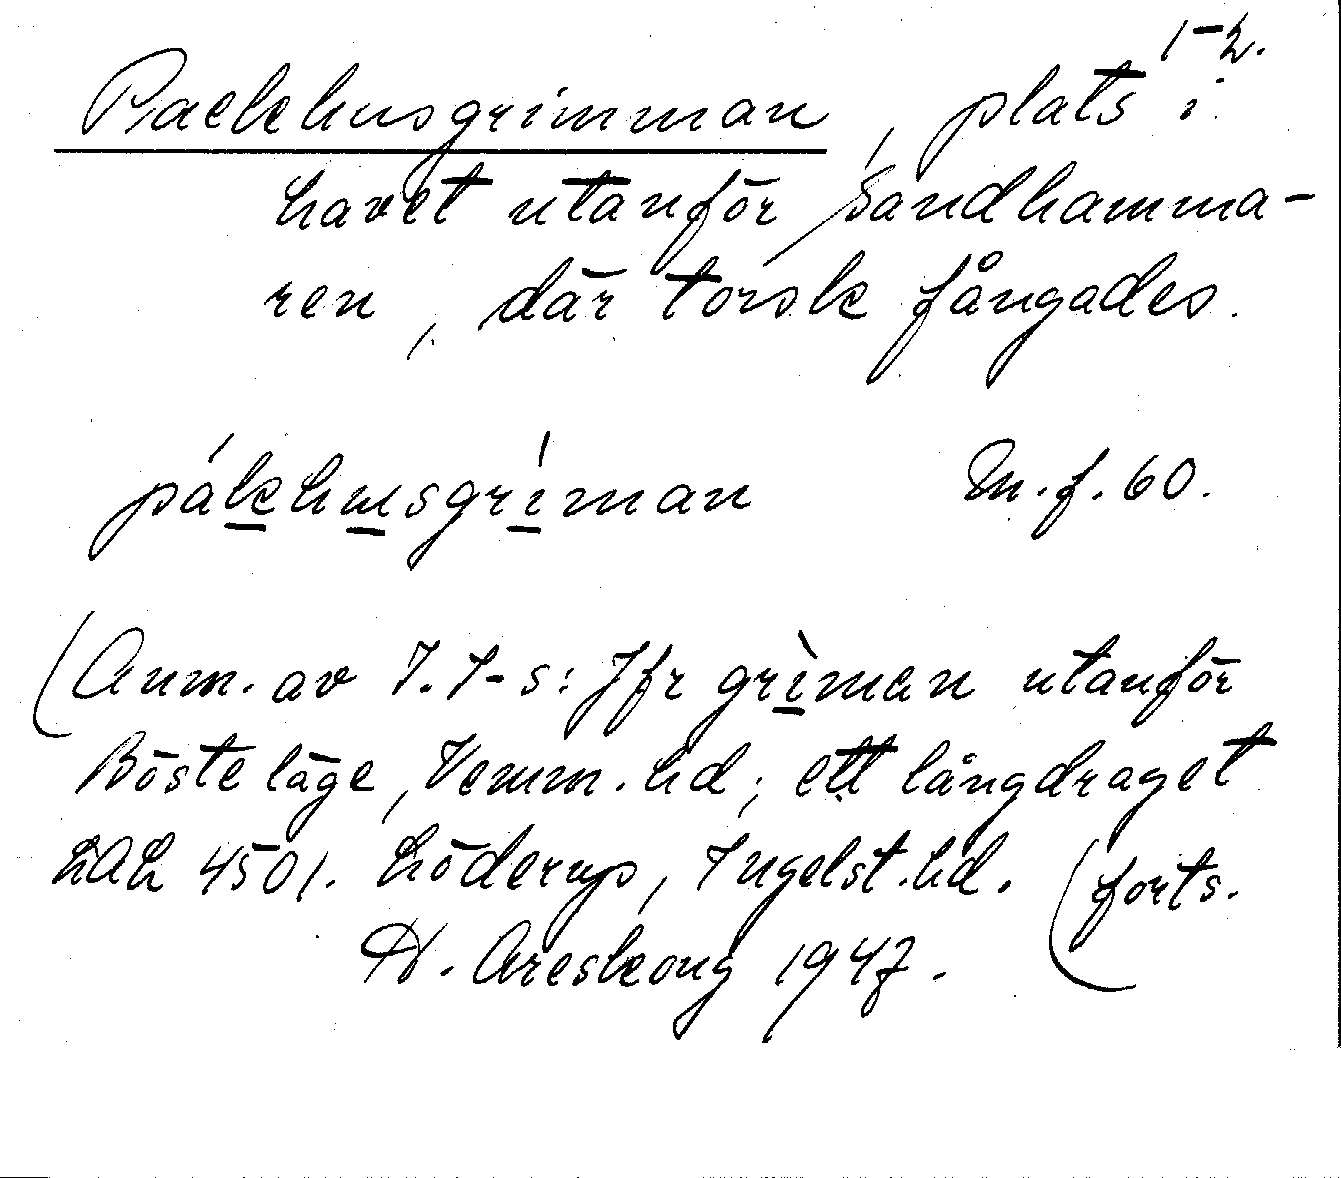 1-2.
Packhusgrimman, plats i
havet utanför Sandhamma-
ren, där torsk fångades.
pákhusgríman M.f.60.
(Anm. av I.I-s: Jfr grìman utanför
Böste läge, Vemm.hd; ett långdraget
LAL 4501. Löderup, Ingelst.hd. (forts.
H. Areskoug 1947.